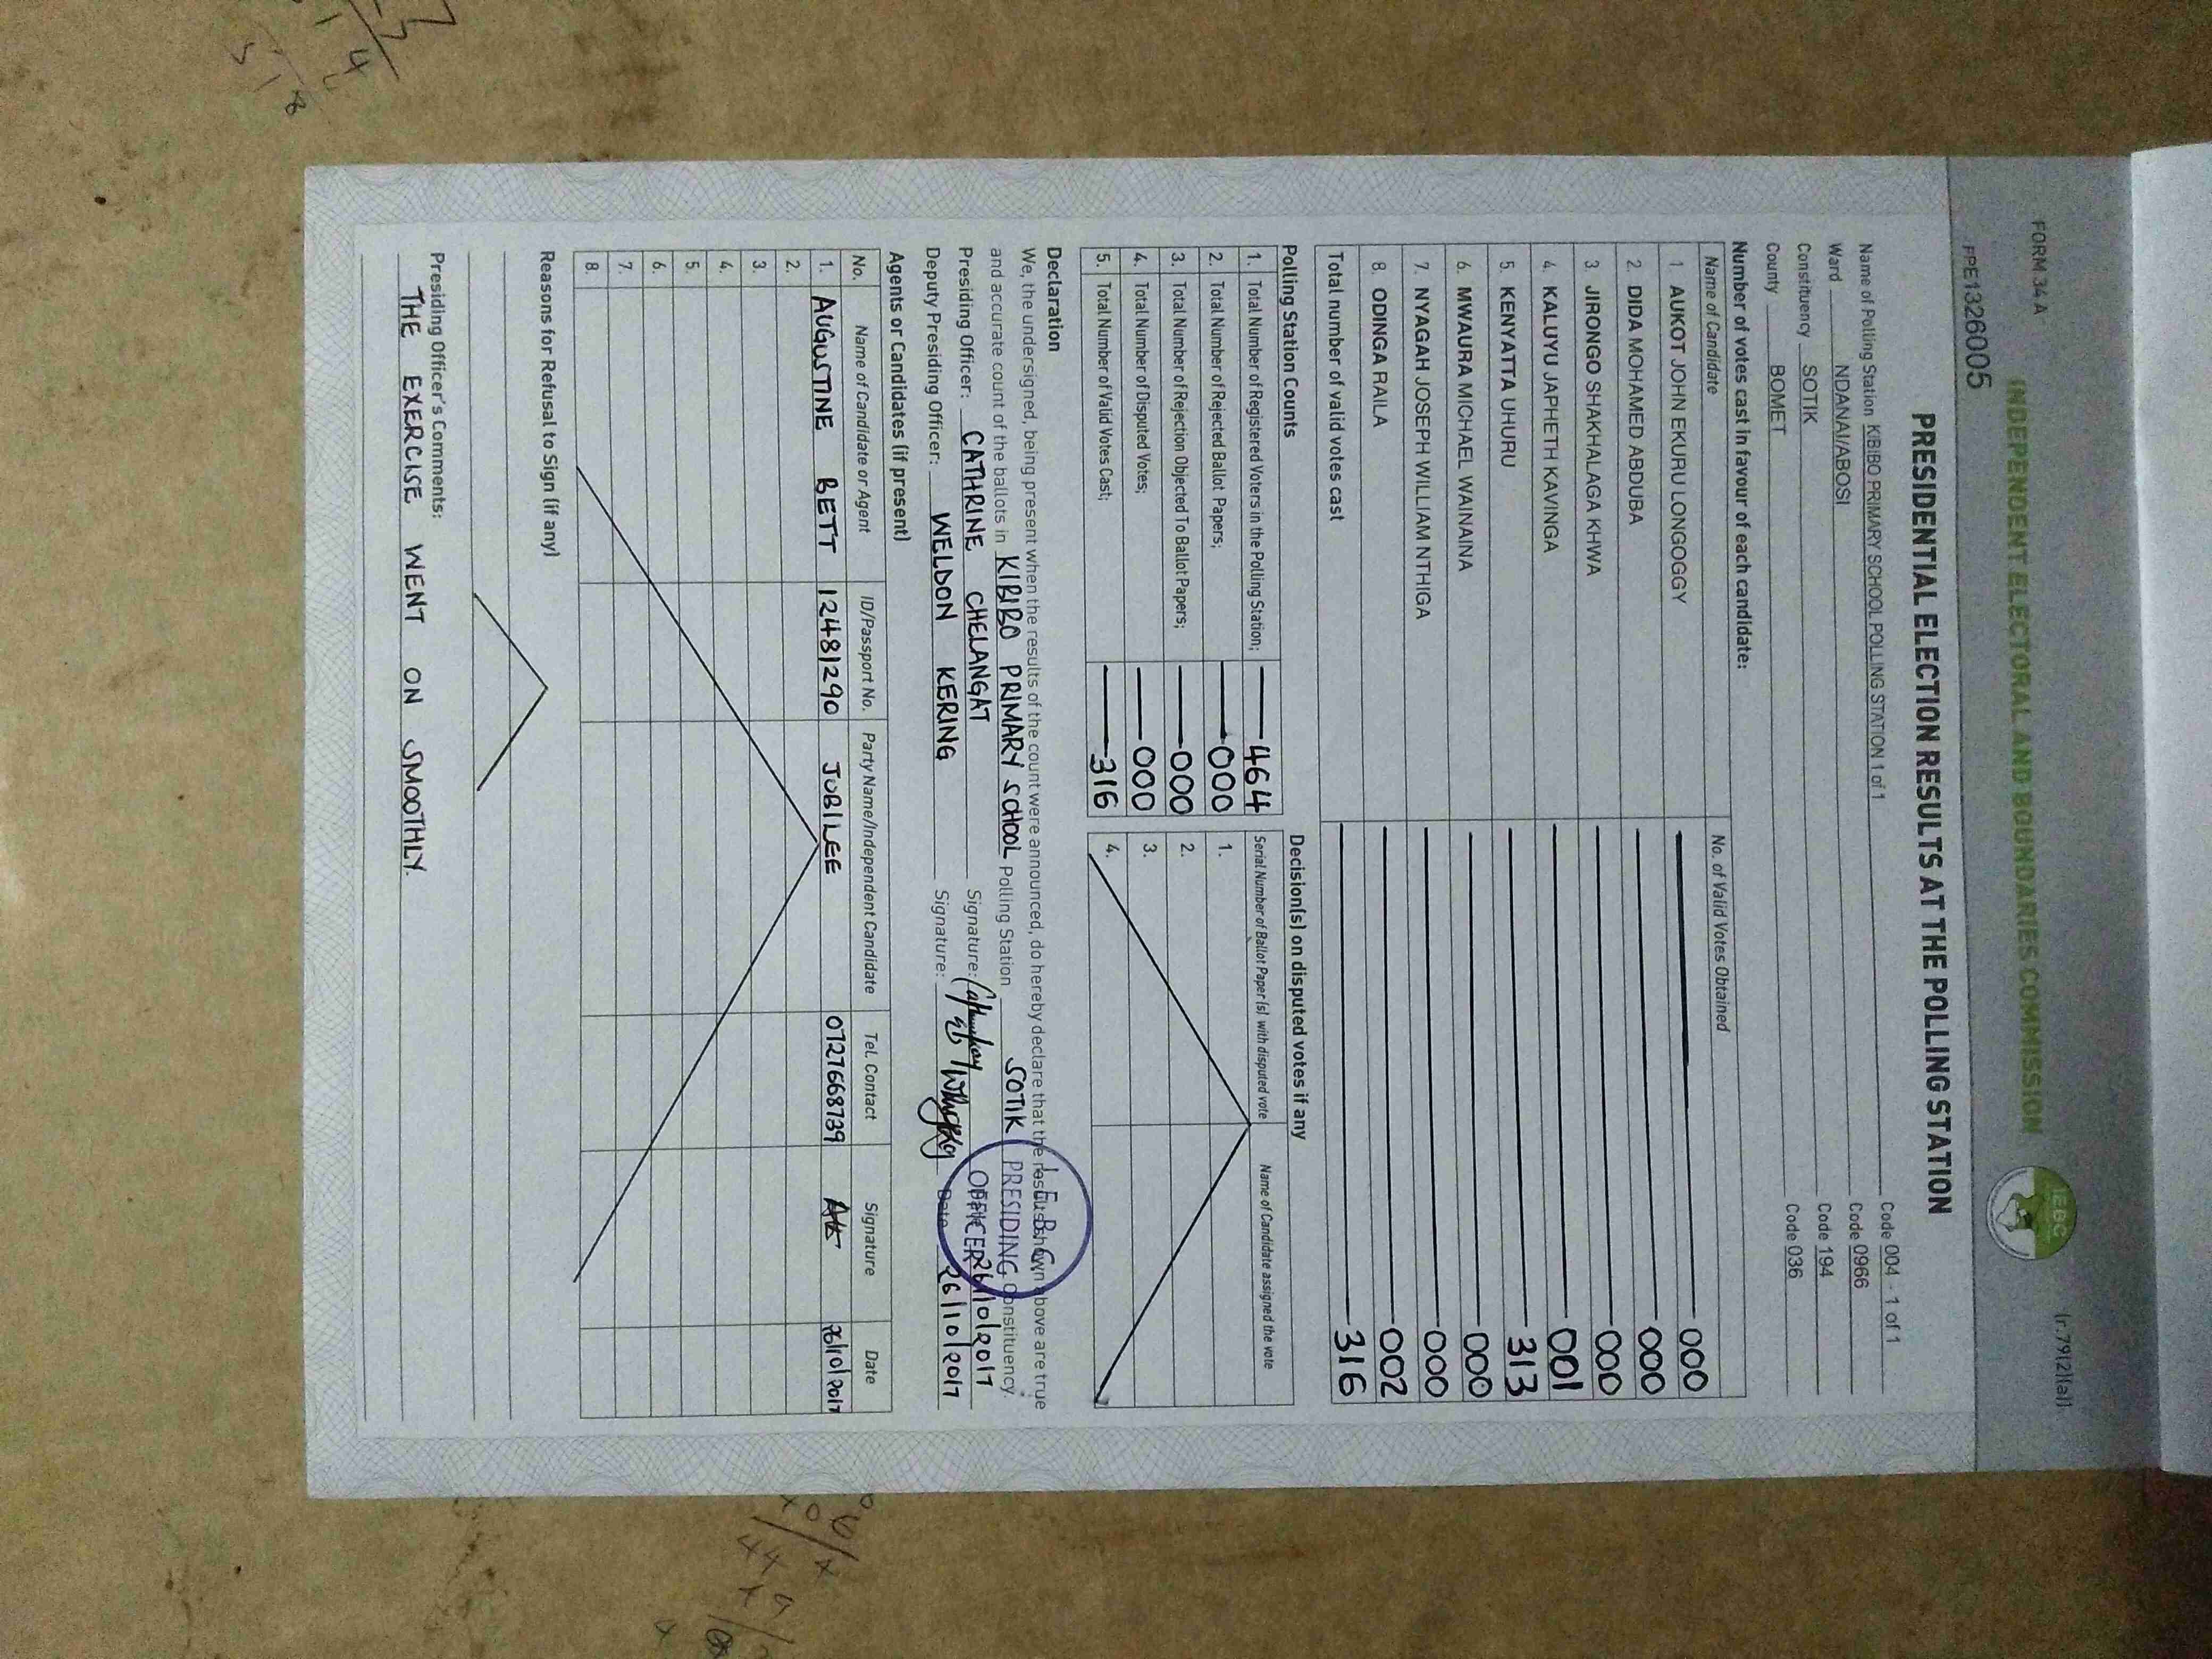 FORM 34A
(r.79(2)(a))
INDEPENDENT ELECTORAL AND BOUNDARIES COMMISSION
IEBC
PPE1326005
PRESIDENTIAL ELECTION RESULTS AT THE POLLING STATION
Name of Polling Station KIBIBO PRIMARY SCHOOL POLLING STATION 1 of 1 Code 004 - 1 of 1
Ward NDANAI/ABOSI Code 0966
Constituency SOTIK Code 194
County BOMET Code 036
Number of votes cast in favour of each candidate:
Name of Candidate No. of Valid Votes Obtained
1 AUKOT JOHN EKURU LONGOGGY 000
2. DIDA MOHAMED ABDUBA 000
3 JIRONGO SHAKHALAGA KHWA 000
4. KALUYU JAPHETH KAVINGA 001
5. KENYATTA UHURU 313
6. MWAURA MICHAEL WAINAINA 000
7. NYAGAH JOSEPH WILLIAM NTHIGA 000
8. ODINGA RAILA 002
Total number of valid votes cast 316
Polling Station Counts
1. Total Number of Registered Voters in the Polling Station; 464
2. Total Number of Rejected Ballot Papers; 000
3. Total Number of Rejection Objected To Ballot Papers; 000
4. Total Number of Disputed Votes; 000
5. Total Number of Valid Votes Cast; 316
Decision(s) on disputed votes if any
Serial Number of Ballot Paper (s) with disputed vote Name of Candidate assigned the vote
1.
2.
3.
4.
Declaration
We, the undersigned, being present when the results of the count were announced, do hereby declare that the results shown above are true
and accurate count of the ballots in KIBIBO PRIMARY SCHOOL Polling Station SOTIK Constituency.
Presiding Officer: CATHRINE CHELANGAT Signature: 26/10/2017
Deputy Presiding Officer: WELDON KERING Signature: Date 26/10/2017
I.E.B.C
PRESIDING
OFFICER
Agents or Candidates (if present)
No. Name of Candidate or Agent ID/Passport No. Party Name/Independent Candidate Tel. Contact Signature Date
1. AUGUSTINE BETT 12481290 JUBILEE 0727668739 26/10/2017
2.
3.
4.
5.
6.
7.
8.
Reasons for Refusal to Sign (if any)
Presiding Officer's Comments:
THE EXERCISE WENT ON SMOOTHLY.